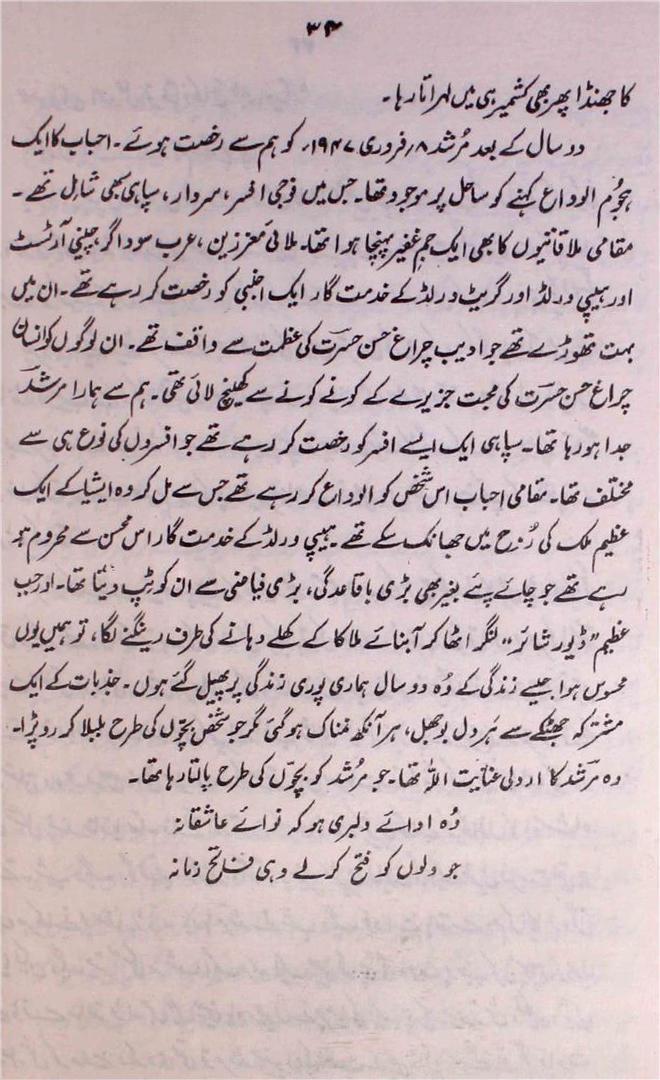 ۳۴
کا جھنڈا پھر بھی کشمیر ہی میں لہراتا رہا۔
دو سال کے بعد مُرشد ۸؍فروری ۱۹۴۷ء کو ہم سے رخصت ہوئے۔ احباب کا ایک
ہجوُم الوداع کہنے کو ساحل پر موجود تھا۔ جس میں فوجی افسر، سردار، سپاہی سبھی شامل تھے۔
مقامی ملاقاتیوں کا بھی ایک جمِ غفیر پہنچا ہوا تھا۔ ملائی معززین، عرب سوداگر، چینی آرٹسٹ
اور ہیپی ورلڈ اور گریٹ ورلڈ کے خدمت گار ایک اجنبی کو رخصت کر رہے تھے۔ ان میں
بہت تھوڑے تھے جو ادیب چراغ حسن حسرت کی عظمت سے واقف تھے۔ ان لوگوں کو انسان
چراغ حسن حسرت کی محبت جزیرے کے کونے کونے سے کھینچ لائی تھی۔ ہم سے ہمارا مرشد
جدا ہو رہا تھا۔ سپاہی ایک ایسے افسر کو رخصت کر رہے تھے جو افسروں کی نوع ہی سے
مختلف تھا۔ مقامی احباب اس شخص کو الوداع کر رہے تھے جس سے مل کر وہ ایشیا کے ایک
عظیم ملک کی رُوح میں جھانک سکے تھے۔ ہیپی ورلڈ کے خدمت گار اس محسن سے محروم ہو
رہے تھے جو چائے پئے بغیر بھی بڑی باقاعدگی، بڑی فیاضی سے ان کو ٹِپ دیتا تھا۔ اور جب
عظیم "ڈیون شائر" لنگر اٹھا کر آبنائے ملاکا کے کھلے دہانے کی طرف رینگنے لگا، تو ہمیں یوں
محسوس ہوا جیسے زندگی کے وُہ دو سال ہماری پوری زندگی پر پھیل گئے ہوں۔ جذبات کے ایک
مشترکہ جھٹکے سے ہر دل بوجھل، ہر آنکھ نمناک ہو گئی مگر جو شخص بچوں کی طرح بلبلا کر رو پڑا۔
وہ مرشد کا اردلی عنایت اللہ تھا۔ جو مرُشد کو بچوں کی طرح پالتا رہا تھا۔
وُہ ادائے دلبری ہو کہ نوائے عاشقانہ
جو دلوں کو فتح کر لے وہی فاتح زمانہ